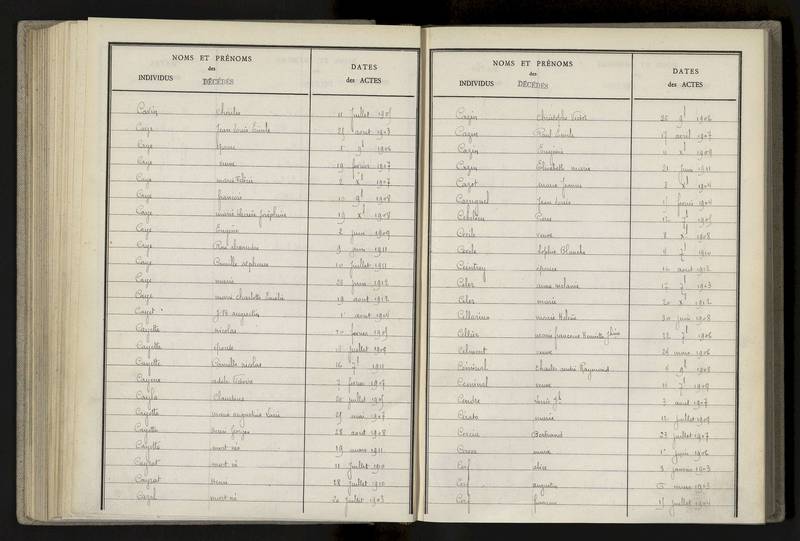 NOMS ET PRÉNOMS
des
INDIVIDUS DÉCÉDÉS
DATES
des ACTES
Cavin Charles 11 Juillet 1905
Caye Jean Louis Emile 25 aout 1903
Caye épouse 1 9b 1906
Caye veuve 19 février 1907
Caye marie Félicie 2 xb 1907
Caye françois 10 9b 1908
Caye 19 xb 1908
Caye Eugène 2 juin 1909
Caye Rose alexandre 9 juin 1911
Caye Camille alphonse 10 Juillet 1911
Caye marie 28 juin 1912
Caye marie charlotte Emilie 19 aout 1912
Cayet J. B. augustin 1 aout 1904
Cayette nicolas 20 février 1905
Cayette épouse 15 juillet 1909
Cayette Camille nicolas 16 7b 1911
Cayeux 7 février 1907
Cayla Claudine 20 juillet 1905
Cayotte marie augustine 29 mai 1907
Cayotte Georges 28 aout 1908
Cayotte mort né 19 mars 1911
Cayrat mort né 11 Juillet 1910
Cayrat Henri 28 Juillet 1910
Cazal mort né 20 Juillet 1903
NOMS ET PRÉNOMS
des
INDIVIDUS DÉCÉDÉS
DATES
des ACTES
Cazin Christophe Victor 26 9b 1906
Cazin Paul Emile 17 avril 1907
Cazin Eugénie 11 xb 1909
Cazin Elisabeth marie 21 Juin 1911
Cazot marie Jeanne 2 xb 1904
Jean Louis 15 février 1904
7b 1905
Cécile veuve 8 xb 1908
Cécile Sophie Blanche 4 7b 1910
épouse 16 aout 1912
Céler anne mélanie 17 7b 1903
Céler marie 20 xb 1912
Cellarius marie Hélène 30 juin 1908
Cellier marie françoise Henriette 22 7b 1906
Celmont veuve 28 mars 1906
Céminal charles andré Raymond 4 9b 1908
Ceminal veuve 11 7b 1909
Cendre Louis 3 aout 1907
Cérato marie 12 juillet 1909
Cercus Bertrand 23 juillet 1907
1 juin 1906
Cerf alice 3 janvier 1903
Cerf augustin 5 mars 1903
Cerf 15 juillet 1904